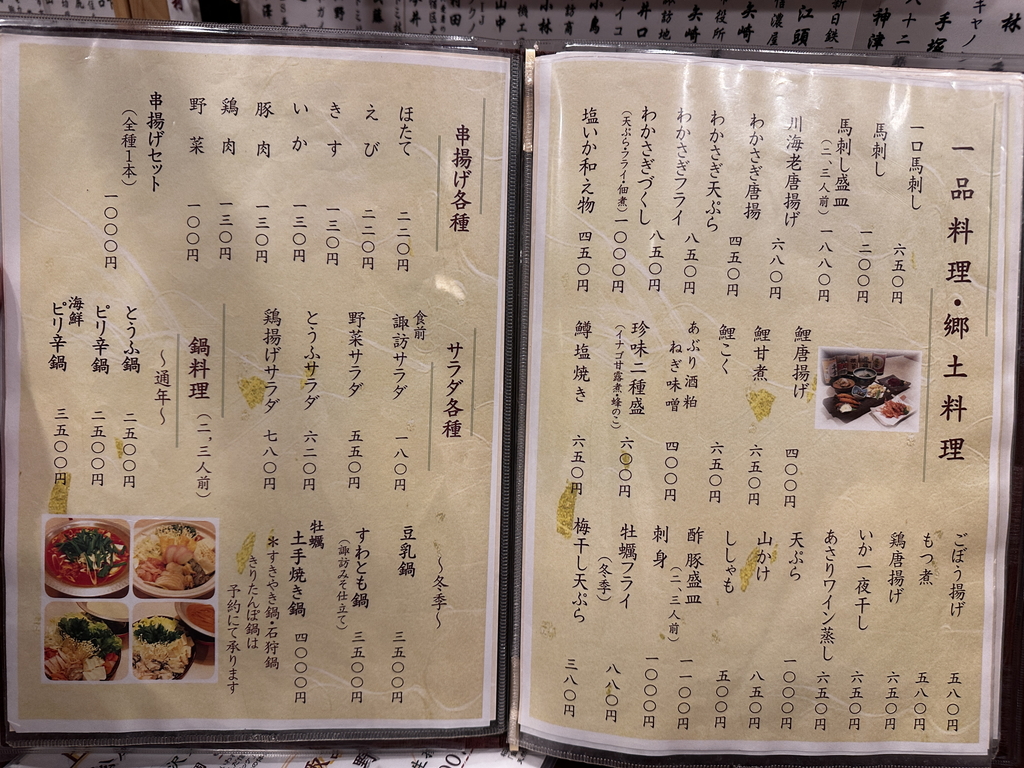 一品料理・郷土料理
一口馬刺し 六五〇円
馬刺し 一二〇〇円
馬刺し盛皿 一八八〇円
(二、三人前)
川海老唐揚げ 六八〇円
わかさぎ唐揚 四五〇円
わかさぎ天ぷら 八五〇円
わかさぎフライ 八五〇円
わかさぎづくし 一〇〇〇円
(天ぷら・フライ・佃煮)
塩いか和え物 四五〇円
鯉唐揚げ 四〇〇円
鯉甘煮 六五〇円
鯉こく 六五〇円
あぶり酒粕
ねぎ味噌 四〇〇円
珍味二種盛 六〇〇円
(イナゴ甘露煮・蜂のこ)
鱒塩焼き 六五〇円
ごぼう揚げ 五八〇円
もつ煮 五八〇円
鶏唐揚げ 六五〇円
いか一夜干し 六五〇円
あさりワイン蒸し 六五〇円
天ぷら 一〇〇〇円
山かけ 八五〇円
ししゃも 五〇〇円
酢豚盛皿 一一〇〇円
(二、三人前)
刺身 一〇〇〇円
牡蠣フライ 八八〇円
(冬季)
梅干し天ぷら 三八〇円
串揚げ各種
ほたて 二二〇円
えび 二二〇円
きす 一三〇円
いか 一三〇円
豚肉 一三〇円
鶏肉 一三〇円
野菜 一〇〇円
串揚げセット 一〇〇〇円
(全種1本)
サラダ各種
食前
諏訪サラダ 一八〇円
野菜サラダ 五五〇円
とうふサラダ 六二〇円
鶏揚げサラダ 七八〇円
鍋料理 (二、三人前)
〜通年〜
とうふ鍋 二五〇〇円
ピリ辛鍋 二五〇〇円
海鮮
ピリ辛鍋 三五〇〇円
〜冬季〜
豆乳鍋 三五〇〇円
すわとも鍋 三五〇〇円
(諏訪みそ仕立て)
牡蠣
土手焼き鍋 四〇〇〇円
*すきやき鍋・石狩鍋
きりたんぽ鍋は
予約にて承ります